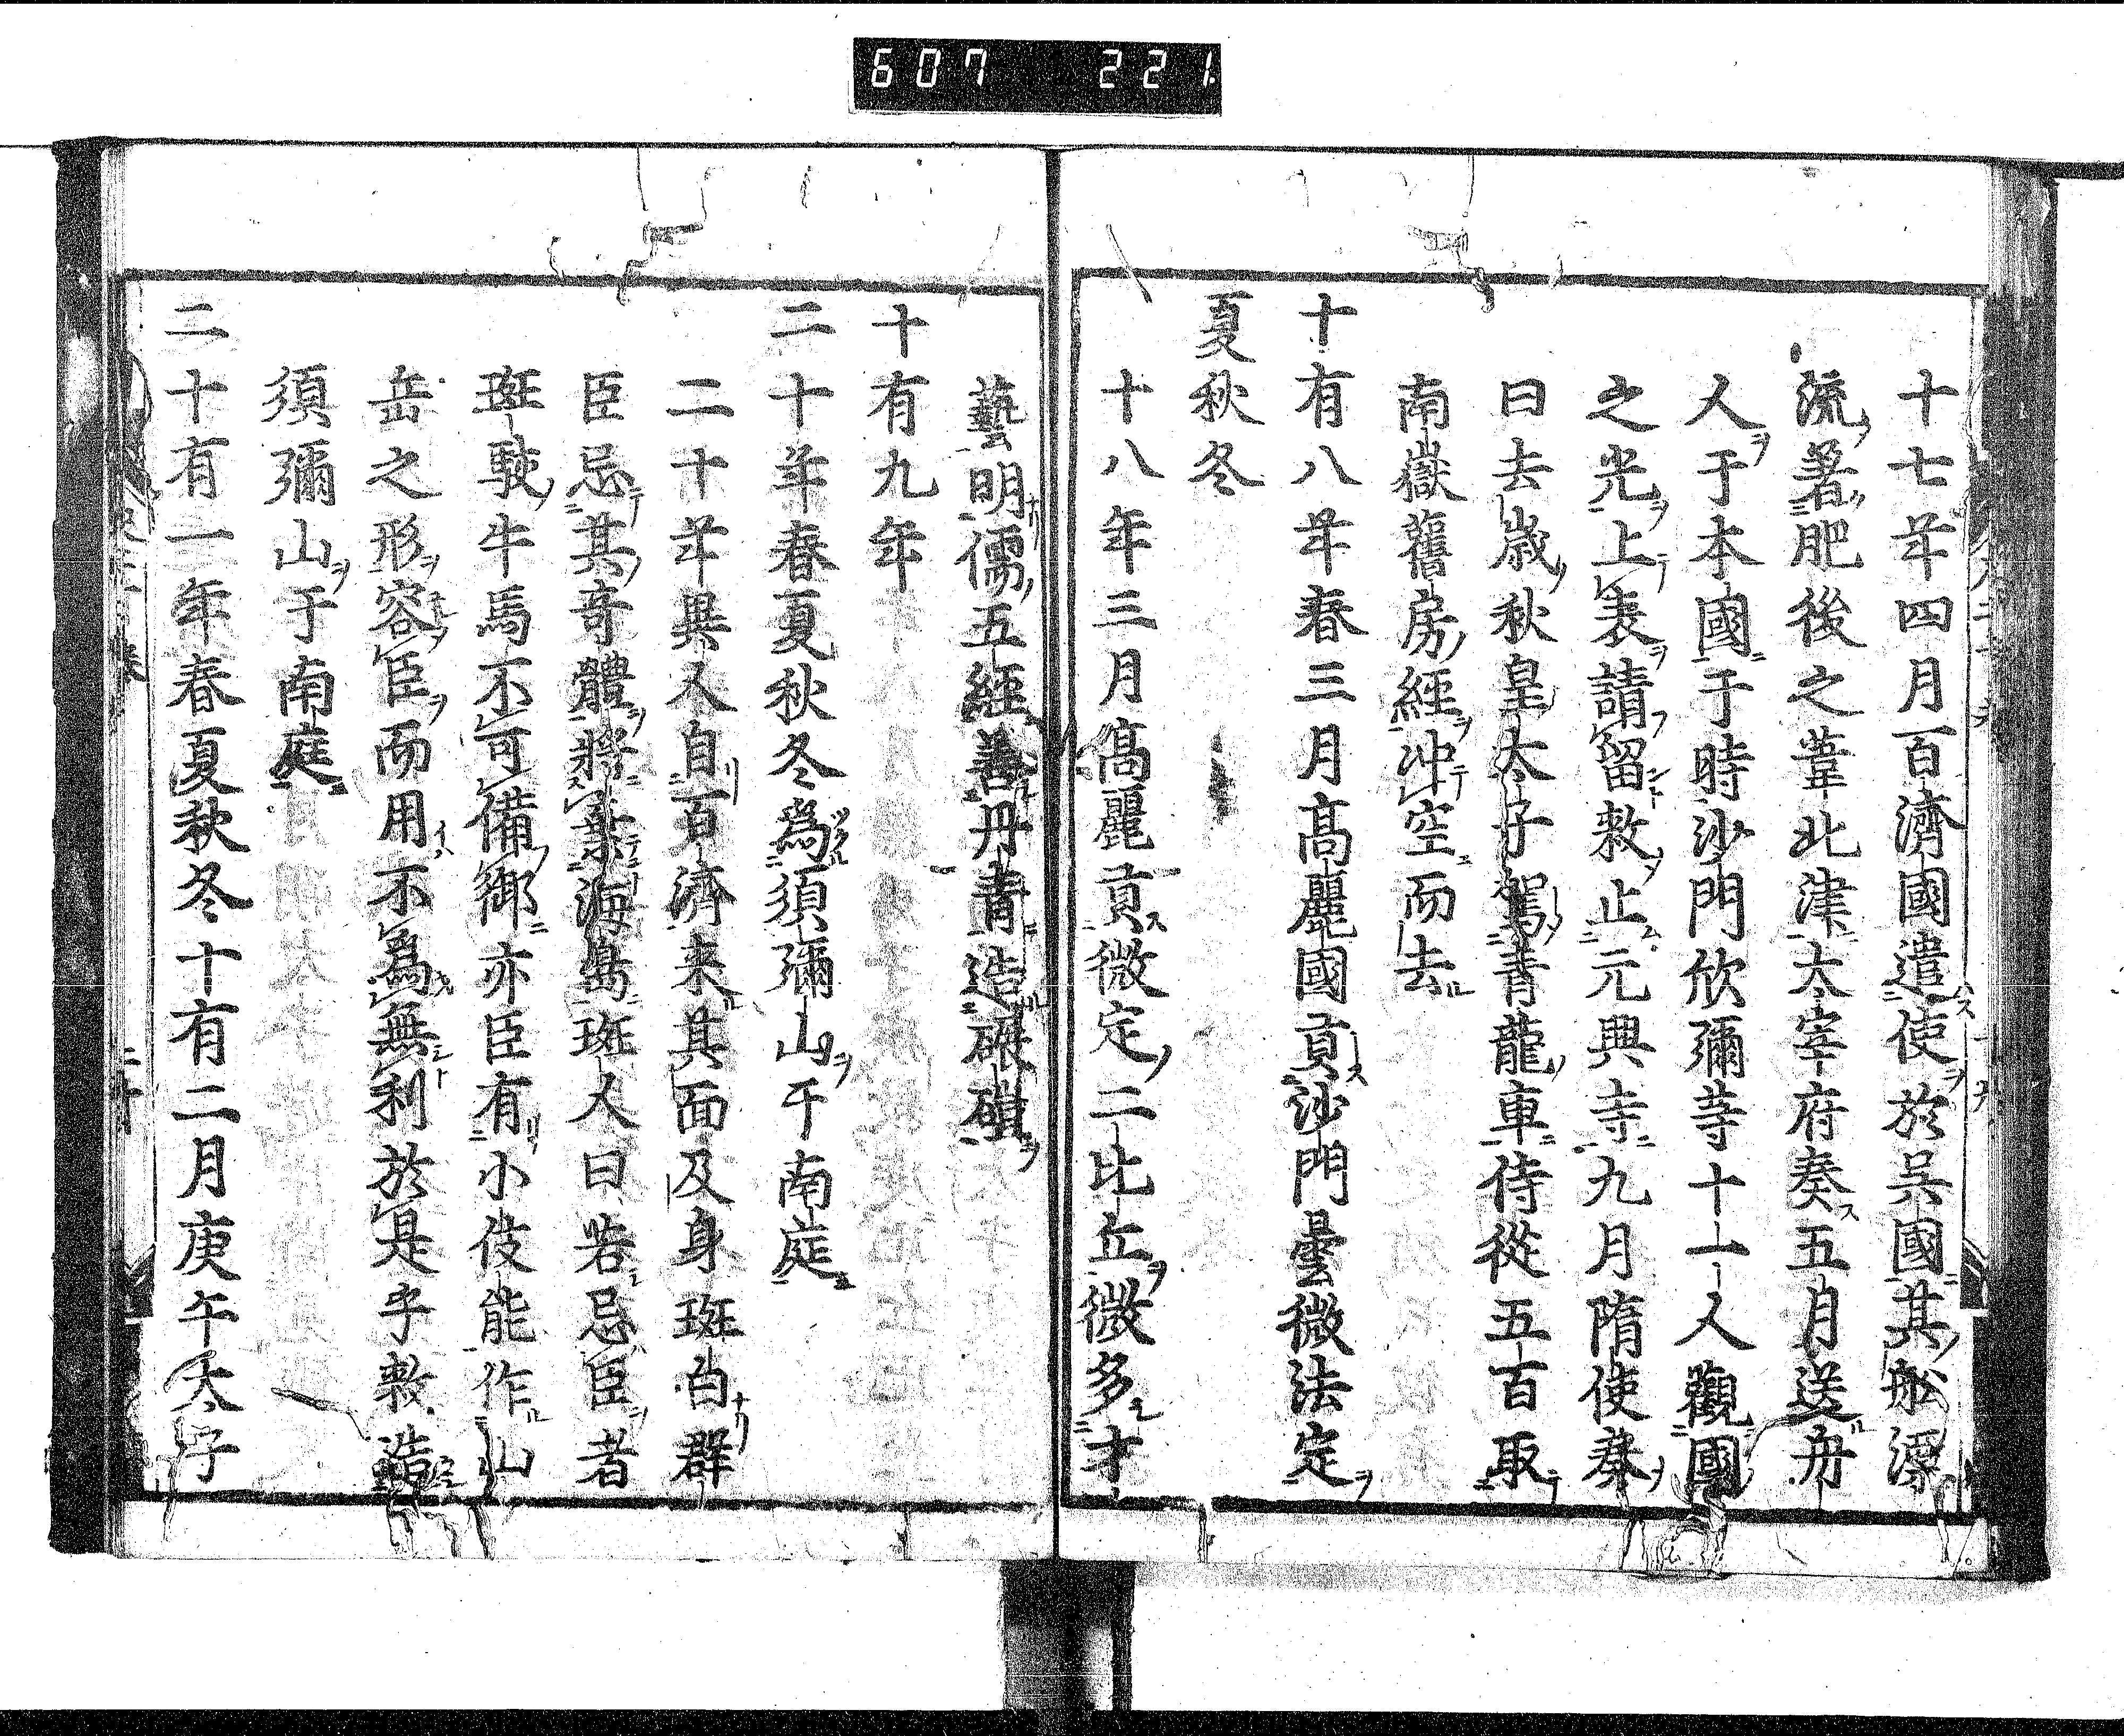 607 221
十七年四月百濟國遣使於呉國其舩漂
流著肥後之葦北津太宰府奏五月送舟
人于本國于時沙門欣彌等十一人觀國
之光上表請留敕止元興寺九月隋使奏
曰去歳秋皇太子駕青龍車侍從五百取
南嶽舊房經冲空而去
十有八年春三月高麗國貢沙門曇微法定
夏秋冬
十八年三月高麗貢微定二比丘微多才
藝明儒五經善丹青造碾磑
十有九年
二十年春夏秋冬爲須彌山于南庭
二十年異人自百濟来其面及身斑白群
臣忌其奇體將棄海島斑人曰若忌臣者
斑駮牛馬不可備御亦臣有小伎能作山
岳之形容臣而用不爲無利於是乎敕造
須彌山于南庭
二十有一年春夏秋冬十有二月庚午太子